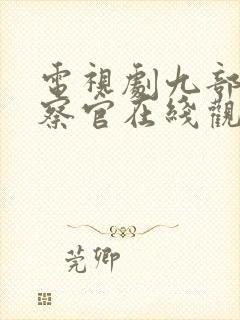 電視劇九部
察官在綫觀
莞卿